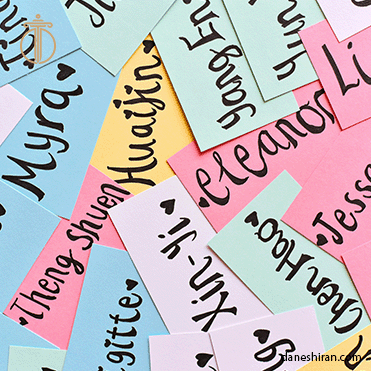 Yang En
Li
Huaijin
Myra
Eleanor
Jesse
Theng Shuen
Xin-yi
Chen Hao
gitte
daneshiran.com